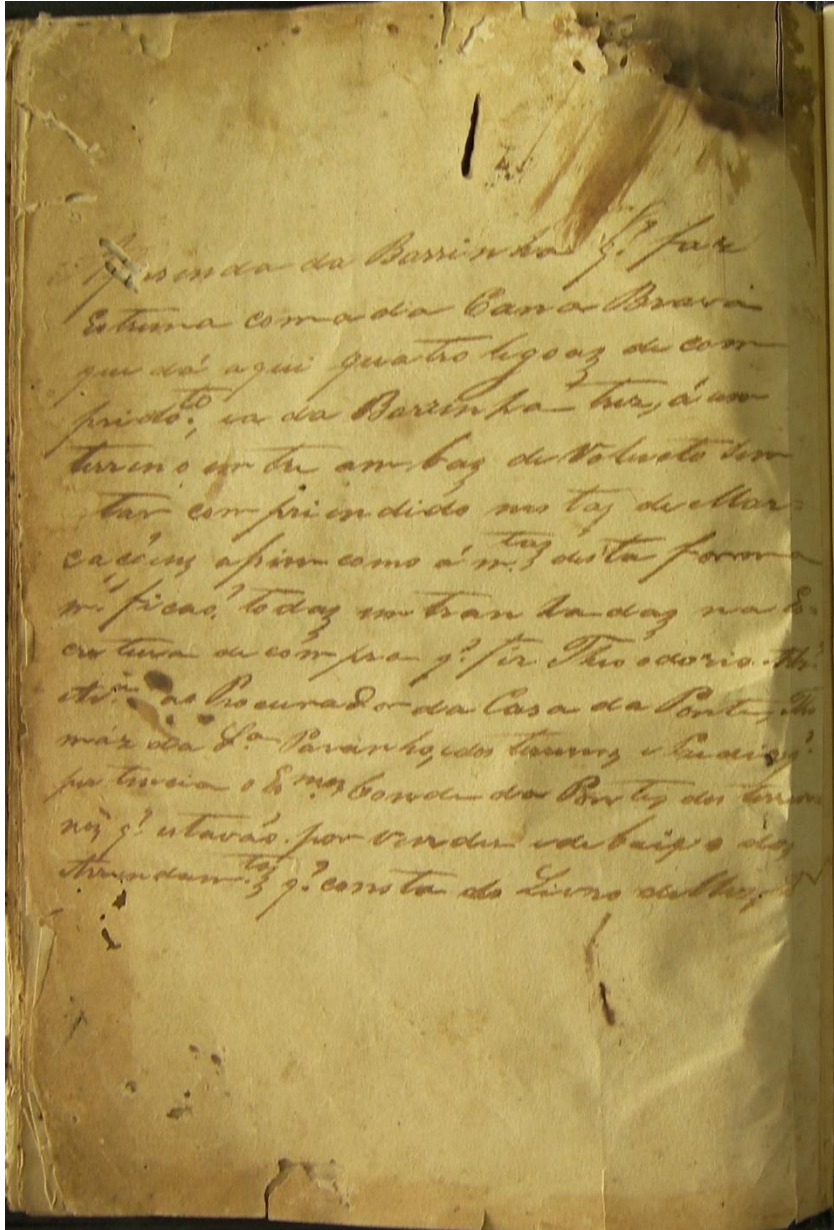 Fasenda da Barrinha q.' faz
Estrema com a dia Cana Brava
que dá aqui quatro legoaz de com
prido.to, ea da Barrinha trez, á um
terreno entre ambaz devoluto sem
tar comprendido nestaz de Mar=
cacõenz assim como á m.taz desta forma
m.' ficaõ todaz entranhadaz na Es=
cretura de cómpra q.' fez Theodorio
ao Procurador da Casa da Ponte, Tho
máz da S.a Paranhos, dos terrenoz e Predioz q.'
pertencia o Ex.mo Conde da Ponte, dos terre
noz q.' estavaõ por vender edebaixo doz
Arrendam.toz q.' consta do Livro do